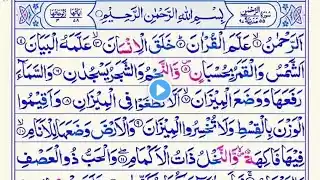 بِسْمِ اللهِ الرَّحْمٰنِ الرَّحِيْمِ
اَلرَّحْمٰنُ عَلَّمَ الْقُرْاٰنَ خَلَقَ الْاِنْسَانَ عَلَّمَهُ الْبَيَانَ
اَلشَّمْسُ وَالْقَمَرُ بِحُسْبَانٍ وَّالنَّجْمُ وَالشَّجَرُ يَسْجُدٰنِ وَالسَّمَآءَ
رَفَعَهَا وَوَضَعَ الْمِيْزَانَ اَلَّا تَطْغَوْا فِى الْمِيْزَانِ وَاَقِيْمُوا
الْوَزْنَ بِالْقِسْطِ وَلَا تُخْسِرُوا الْمِيْزَانَ وَالْاَرْضَ وَضَعَهَا لِلْاَنَامِ
فِيْهَا فَاكِهَةٌ وَّالنَّخْلُ ذَاتُ الْاَكْمَامِ وَالْحَبُّ ذُو الْعَصْفِ